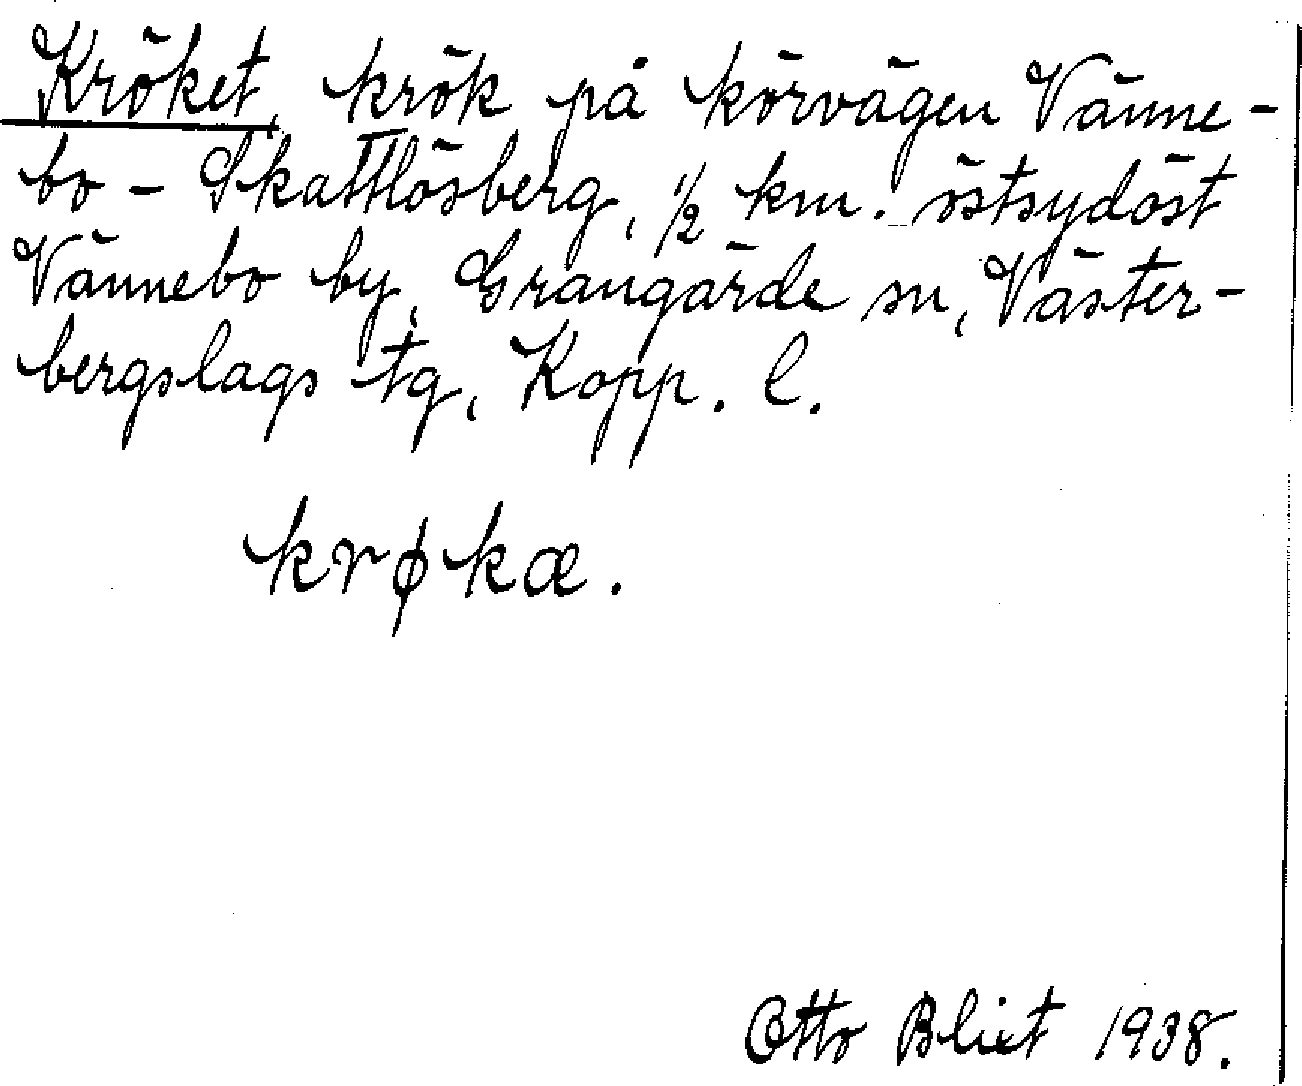 Kröket, krök på körvägen Vänne-
bo - Skattlösberg, 1/2 km. östsydöst
Vännebo by, Grangärde sn, Väster-
bergslags tg, Kopp. l.
krøkæ.
Otto Blixt 1938.